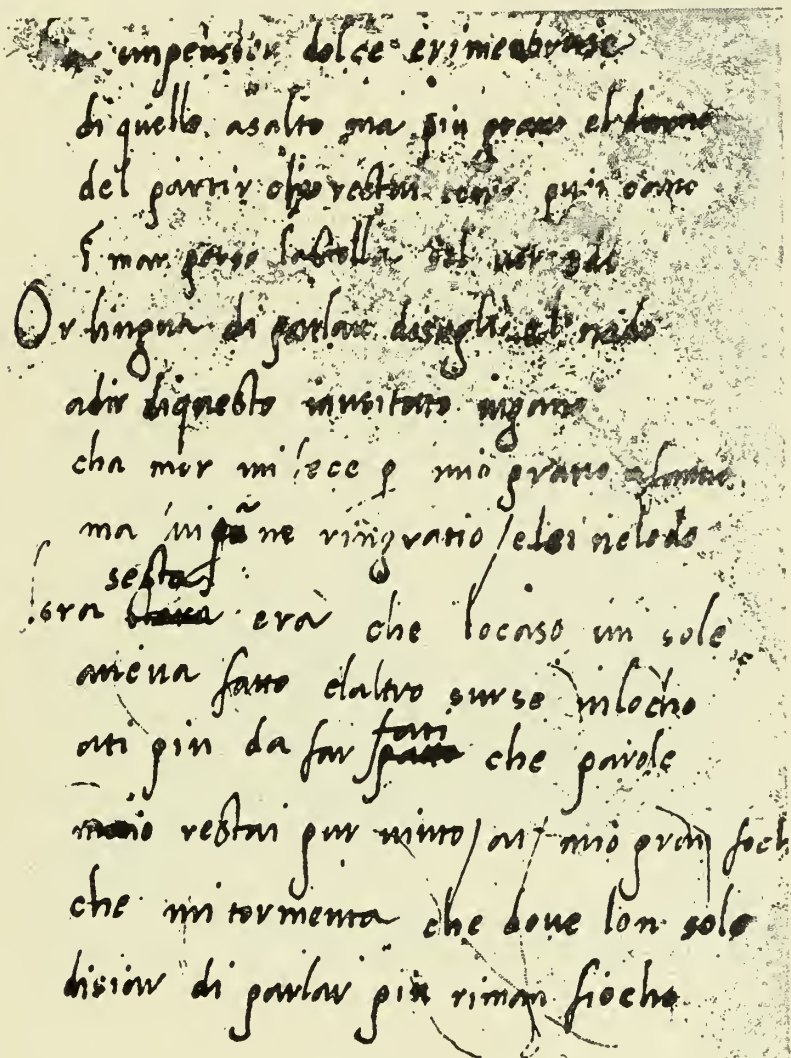 un pensier dolce e rimenbrase
di quello asalto ma piu grave el danno
del partir chio restai como quei cano
i mar perso la stella sel ver odo
Or lingua di parlar disogli el nodo
adir di questo inusitato ingano
cha mor mi fece p mio gravo afanno
ma lui piu ne ringratio / e lei ne lodo
sesta
lora era che locaso un sole
aueua fatto elaltro surse inlocho
ati piu da far fati che parole
io restai pur uinto / al mio gran foch
che mi tormenta che doue lon sole
disiar di parlar piu riman fiocho